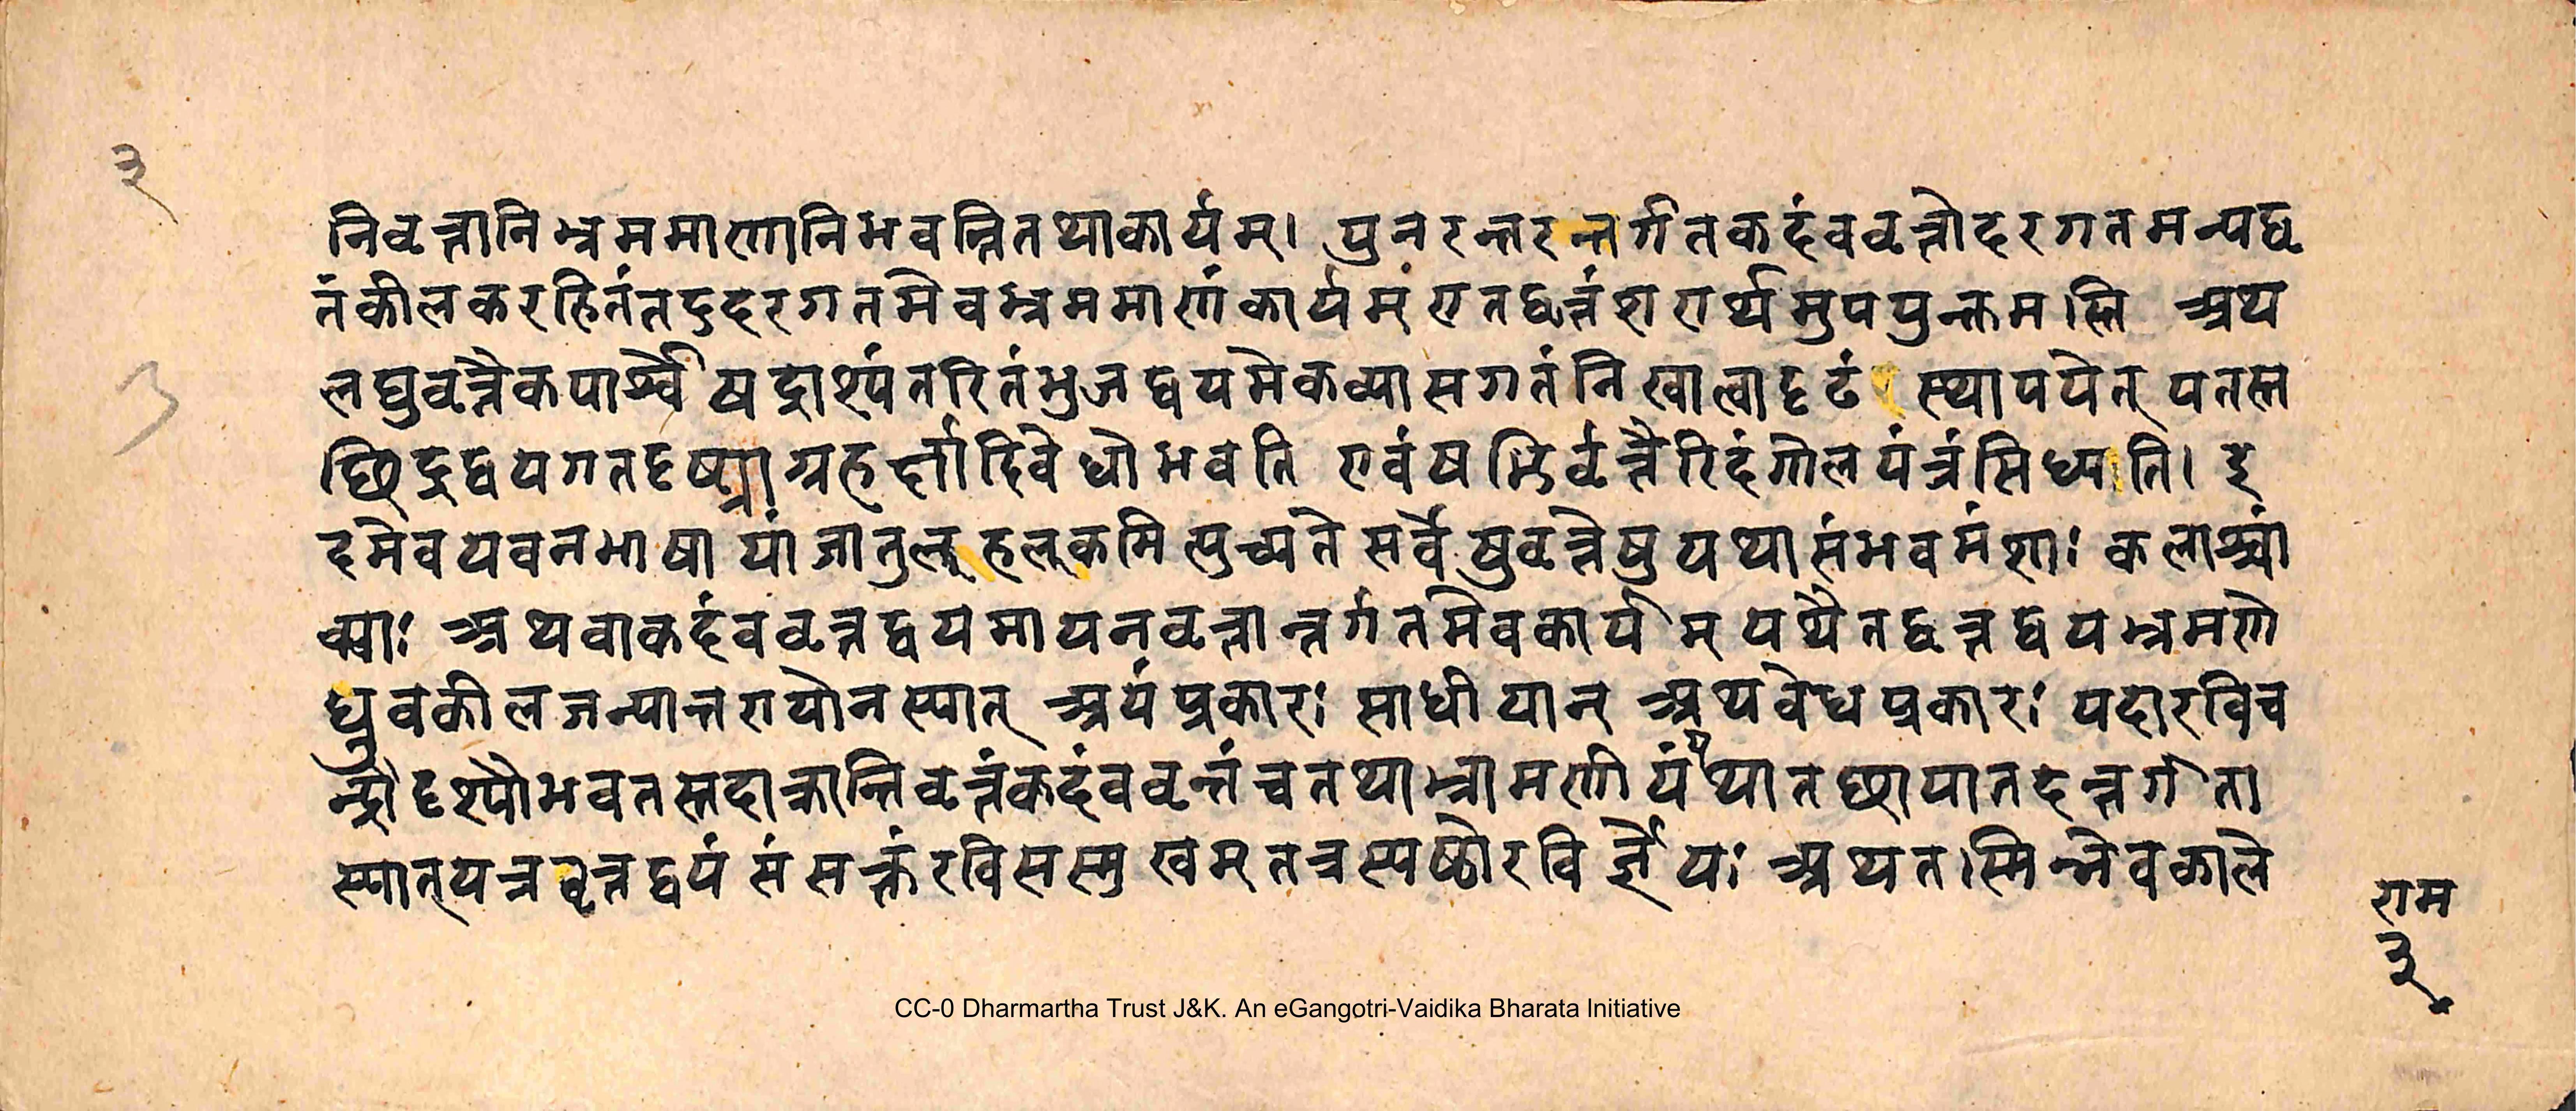 ३
निवृत्तानि भ्रममाणानि भवन्ति तथा कार्यम्। पुनरन्तरन्तर्गतकदंबवृत्तोदरगतमन्यद्वृ
त्तं कीलकरहितं तदुदरगतमेव भ्रममाणं कार्यम् एतद्वृत्तं शरार्थमुपयुक्तमस्ति अथ
लघुवृत्तैकपार्श्वे षद्राश्यंतरितं भुजद्वयमेकव्यासगतं निखात्वा दृढं स्थापयेत् यतस्त
छिद्रद्वयगतदृष्ट्या ग्रहर्क्षादिवेधो भवति एवं षड्भिर्वृत्तैरिदं गोलयंत्रं सिध्यति। इ
दमेव यवनभाषायां जातुल् हलूकमित्युच्यते सर्वेषु वृत्तेषु यथासंभवमंशाः कलाश्चां
क्याः अथवा कदंबवृत्तद्वयमायनवृत्तान्तर्गतमेव कार्यम् यथैतद्वृत्तद्वयभ्रमणे
ध्रुवकीलजन्यान्तरायो न स्यात् अयं प्रकारः साधीयान् अथ वेधप्रकारः यदा रविच
न्द्रौ दृश्यौ भवतस्तदा क्रान्तिवृत्तं कदंबवृत्तं च तथा भ्रामणीयं यथा तछाया तदन्तर्गता
स्यात् यत्र वृत्तद्वयं संसक्तं रविसस्मुखम् तत्र स्पष्टो रविर्ज्ञेयः अथ तस्मिन्नेव काले
राम
३
3
CC-0 Dharmartha Trust J&K. An eGangotri-Vaidika Bharata Initiative